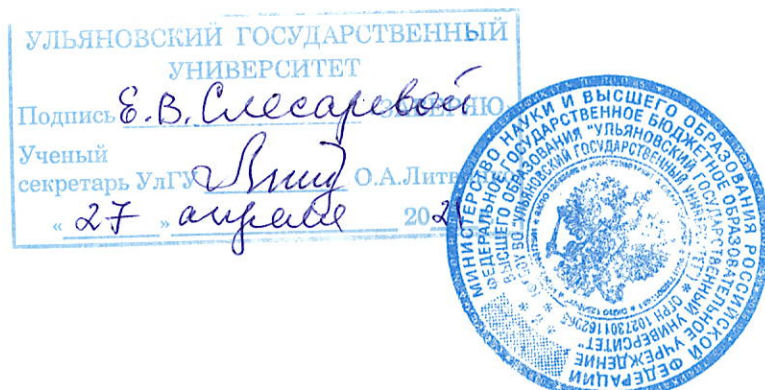 УЛЬЯНОВСКИЙ ГОСУДАРСТВЕННЫЙ
УНИВЕРСИТЕТ
Подпись Е.В. Слесаревой ЗАВЕРЯЮ
Ученый
секретарь УлГУ О.А.Литвинко
« 27 » апреля 20
МИНИСТЕРСТВО НАУКИ И ВЫСШЕГО ОБРАЗОВАНИЯ РОССИЙСКОЙ ФЕДЕРАЦИИ
ФЕДЕРАЛЬНОЕ ГОСУДАРСТВЕННОЕ БЮДЖЕТНОЕ ОБРАЗОВАТЕЛЬНОЕ УЧРЕЖДЕНИЕ
ВЫСШЕГО ОБРАЗОВАНИЯ "УЛЬЯНОВСКИЙ ГОСУДАРСТВЕННЫЙ УНИВЕРСИТЕТ"
УЛЬЯНОВСКИЙ ГОСУДАРСТВЕННЫЙ УНИВЕРСИТЕТ") * ОГРН